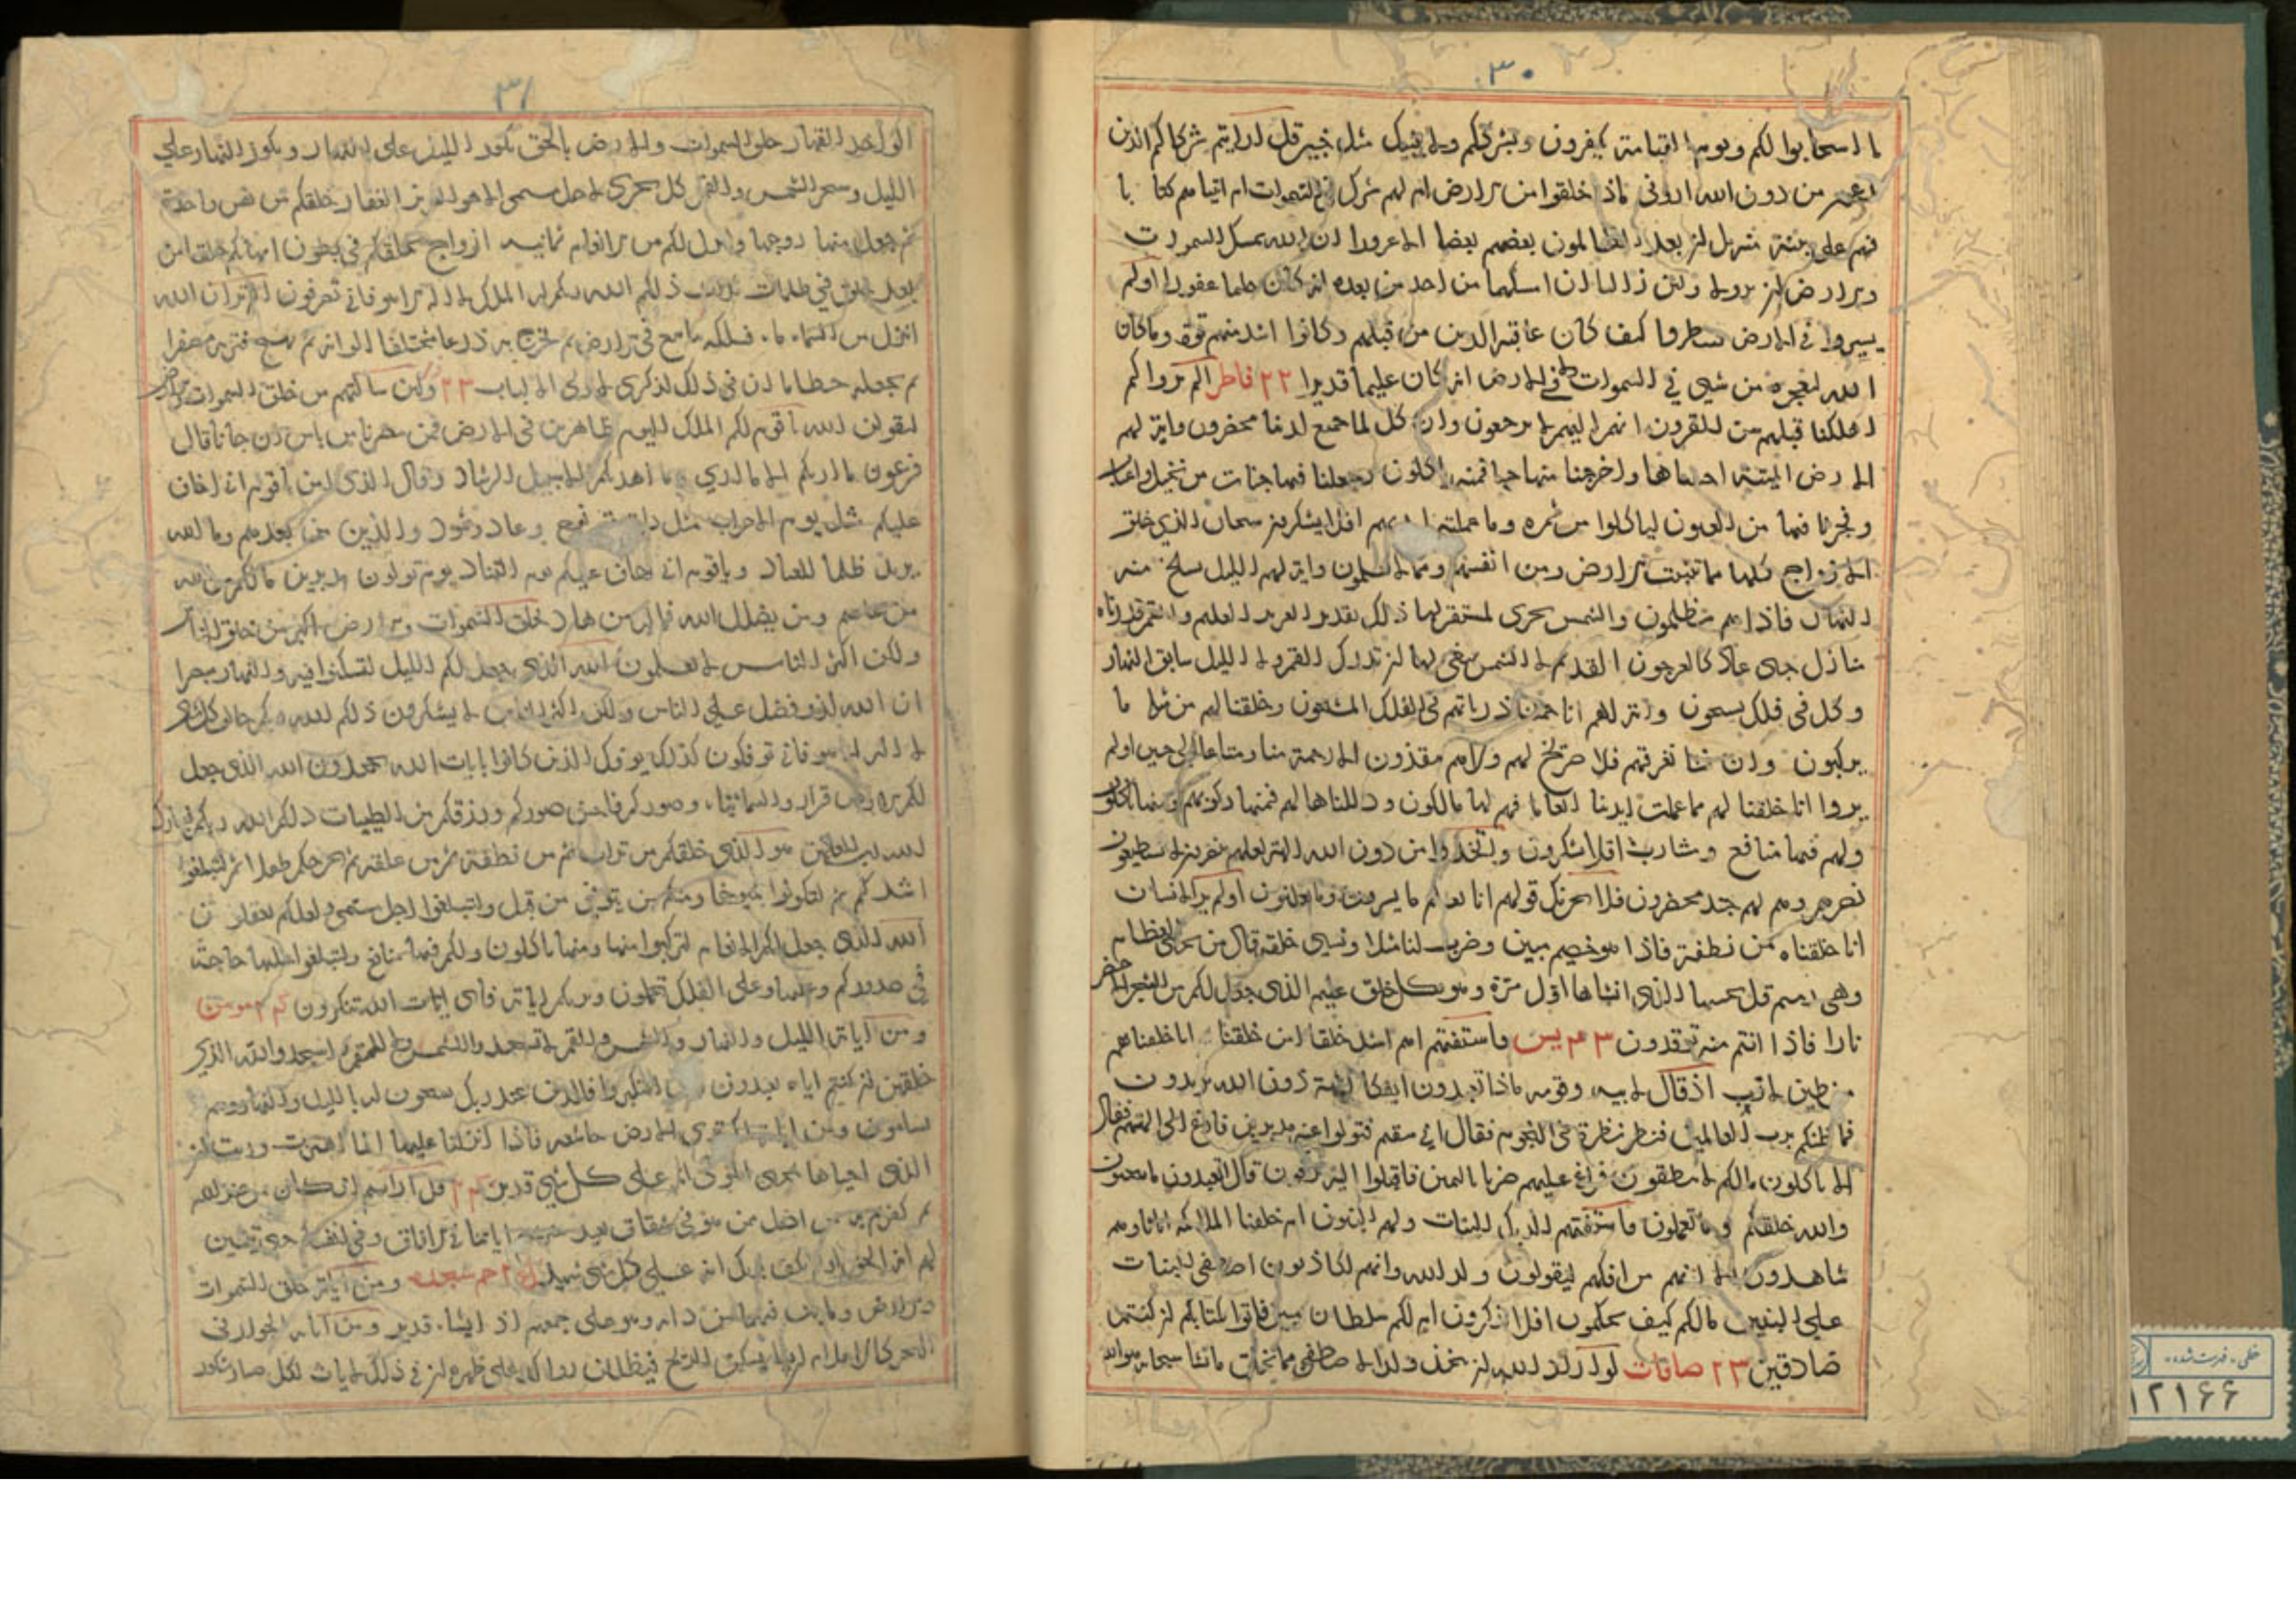 ٣٠
ما استجابوا لكم ويوم القيامة يكفرون بشرككم ولا ينبئك مثل خبير قل ارايتم شركاكم الذين
من دون الله ارونى ماذا خلقوا من الارض ام لهم شرك فى السموات ام اتيناهم كتابا
فهم على بينة منه بل ان يعد الظالمون بعضهم بعضا الا غرورا ان الله يمسك السموات
والارض ان تزولا ولئن زالتا ان امسكهما من احد من بعده انه كان حليما غفورا اولم
يسيروا فى الارض فينظروا كيف كان عاقبة الذين من قبلهم وكانوا اشد منهم قوة وما كان
الله ليعجزه من شيى فى السموات ولا فى الارض انه كان عليما قديرا ٢٢ فاطر الم يروا كم
اهلكنا قبلهم من القرون انهم اليهم لا يرجعون وان كل لما جميع لدينا محضرون واية لهم
الارض الميتة احييناها واخرجنا منها حبا فمنه ياكلون وجعلنا فيها جنات من نخيل واعناب
وفجرنا فيها من العيون لياكلوا من ثمره وما عملته ايديهم افلا يشكرون سبحان الذى خلق
الازواج كلها مما تنبت الارض ومن انفسهم ومما لا يعلمون واية لهم الليل نسلخ منه
النهار فاذا هم مظلمون والشمس تجرى لمستقر لها ذلك تقدير العزيز العليم والقمر قدرناه
منازل حتى عاد كالعرجون القديم لا الشمس ينبغى لها ان تدرك القمر ولا الليل سابق النهار
وكل فى فلك يسبحون واية لهم انا حملنا ذرياتهم فى الفلك المشحون وخلقنا لهم من مثله ما
يركبون وان نشا نغرقهم فلا صريخ لهم ولا هم ينقذون الا رحمة منا ومتاعا الى حين اولم
يروا انا خلقنا لهم مما عملت ايدينا انعاما فهم لها مالكون وذللناها لهم فمنها ركوبهم ومنها ياكلون
ولهم فيها منافع ومشارب افلا يشكرون واتخذوا من دون الله الهة لعلهم ينصرون لا يستطيعون
نصرهم وهم لهم جند محضرون فلا يحزنك قولهم انا نعلم ما يسرون وما يعلنون اولم ير الانسان
انا خلقناه من نطفة فاذا هو خصيم مبين وضرب لنا مثلا ونسى خلقه قال من يحيى العظام
وهى رميم قل يحييها الذى انشاها اول مرة وهو بكل خلق عليم الذى جعل لكم من الشجر الاخضر
نارا فاذا انتم منه توقدون ٢٣ يس فاستفتهم اهم اشد خلقا ام من خلقنا انا خلقناهم
من طين لازب اذ قال لابيه وقومه ماذا تعبدون ايفكا الهة دون الله تريدون
فما ظنكم برب العالمين فنظر نظرة فى النجوم فقال انى سقيم فتولوا عنه مدبرين فراغ الى الهتهم فقال
الا تاكلون مالكم لا تنطقون فراغ عليهم ضربا باليمين فاقبلوا اليه يزفون قال اتعبدون ما تنحتون
والله خلقكم وما تعملون فاستفتهم الربك البنات ولهم البنون ام خلقنا الملائكة اناثا وهم
شاهدون الا انهم من افكهم ليقولون ولد الله وانهم لكاذبون اصطفى البنات
على البنين مالكم كيف تحكمون افلا تذكرون ام لكم سلطان مبين فاتوا بكتابكم ان كنتم
صادقين ٢٣ صافات لو اراد الله ان يتخذ ولدا لاصطفى مما يخلق ما يشا سبحانه هو الله
٣١
الواحد القهار خلق السموات والارض بالحق يكور الليل على النهار ويكور النهار على
الليل وسخر الشمس والقمر كل يجرى لاجل مسمى الا هو العزيز الغفار خلقكم من نفس واحدة
ثم جعل منها زوجها وانزل لكم من الانعام ثمانية ازواج يخلقكم فى بطون امهاتكم خلقا من
بعد خلق فى ظلمات ثلاث ذلكم الله ربكم له الملك لا اله الا هو فانى تصرفون الم تر ان الله
انزل من السماء ماء فسلكه ينابيع فى الارض ثم يخرج به زرعا مختلفا الوانه ثم يهيج فتريه مصفرا
ثم يجعله حطاما ان فى ذلك لذكرى لاولى الالباب ٢٣ ولئن سالتهم من خلق السموات والارض
ليقولن الله يا قوم لكم الملك اليوم ظاهرين فى الارض فمن ينصرنا من باس الله ان جاءنا قال
فرعون ما اريكم الا ما ارى وما اهديكم الا سبيل الرشاد وقال الذى امن يا قوم انى اخاف
عليكم مثل يوم الاحزاب مثل داب قوم نوح وعاد وثمود والذين من بعدهم وما الله
يريد ظلما للعباد ويا قوم انى اخاف عليكم يوم التناد يوم تولون مدبرين ما لكم من الله
من عاصم ومن يضلل الله فما له من هاد لخلق السموات والارض اكبر من خلق الناس
ولكن اكثر الناس لا يعلمون الله الذى جعل لكم الليل لتسكنوا فيه والنهار مبصرا
ان الله لذو فضل على الناس ولكن اكثر الناس لا يشكرون ذلكم الله ربكم خالق كل شى
لا اله الا هو فانى توفكون كذلك يوفك الذين كانوا بايات الله يجحدون الله الذى جعل
لكم الارض قرارا والسماء بناء وصوركم فاحسن صوركم ورزقكم من الطيبات ذلكم الله ربكم فتبارك
الله رب العالمين هو الذى خلقكم من تراب ثم من نطفة ثم من علقة ثم يخرجكم طفلا ثم لتبلغوا
اشدكم ثم لتكونوا شيوخا ومنكم من يتوفى من قبل ولتبلغوا اجل مسمى ولعلكم تعقلون
الله الذى جعل لكم الانعام لتركبوا منها ومنها تاكلون ولكم فيها منافع ولتبلغوا عليها حاجة
فى صدوركم وعليها وعلى الفلك تحملون ويريكم اياته فاى ايات الله تنكرون مومن
ومن اياته الليل والنهار والشمس والقمر لا تسجدوا للشمس ولا للقمر واسجدوا لله الذى
خلقهن ان كنتم اياه تعبدون فان استكبروا فالذين عند ربك يسبحون له بالليل والنهار وهم
لا يسامون ومن اياته انك ترى الارض خاشعة فاذا انزلنا عليها الماء اهتزت وربت ان
الذى احياها لمحى الموتى انه على كل شى قدير قل ارايتم ان كان من عند الله
ثم كفرتم به من اضل ممن هو فى شقاق بعيد اياتنا فى الافاق وفى انفسهم حتى يتبين
لهم انه الحق اولم يكف بربك انه على كل شى شهيد حم سجده ومن اياته خلق السموات
والارض وما بث فيهما من دابة وهو على جمعهم اذا يشاء قدير ومن اياته الجوار فى
البحر كالاعلام ان يشا يسكن الريح فيظللن رواكد على ظهره ان فى ذلك لايات لكل صبار شكور
خطى - فهرست شده
١٢١۶۶